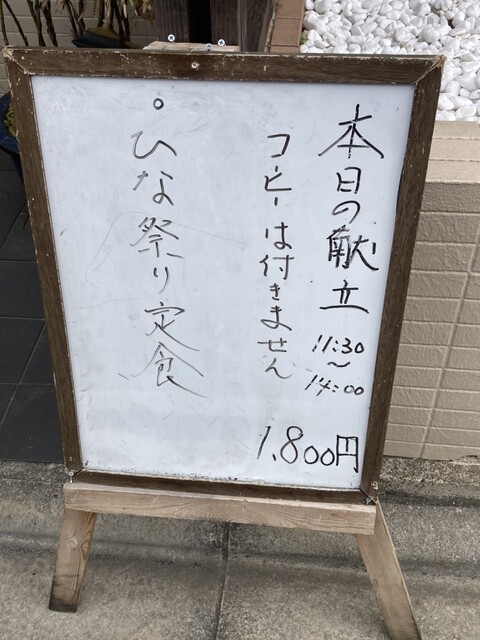 本日の献立
11:30
~
14:00
コーヒーは付きません
。ひな祭り定食
1,800円